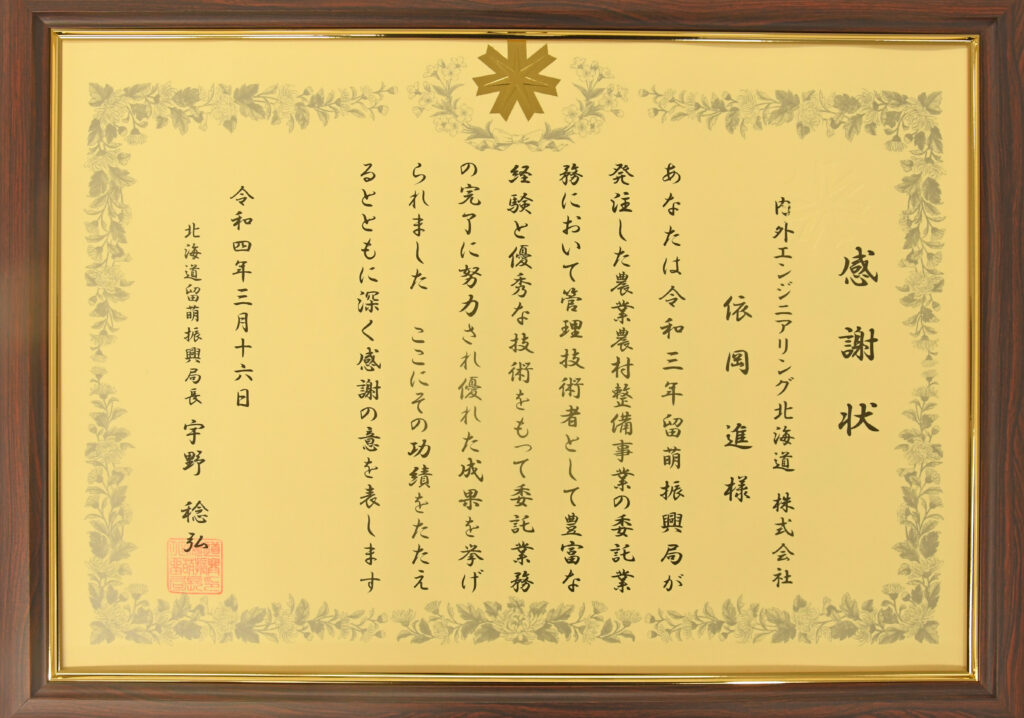 感謝状
内外エンジニアリング北海道 株式会社
依岡進様
あなたは令和三年留萌振興局が
発注した農業農村整備事業の委託業
務において管理技術者として豊富な
経験と優秀な技術をもって委託業務
の完了に努力され優れた成果を挙げ
られました ここにその功績をたたえ
るとともに深く感謝の意を表します
令和四年三月十六日
北海道留萌振興局長 宇野 稔弘